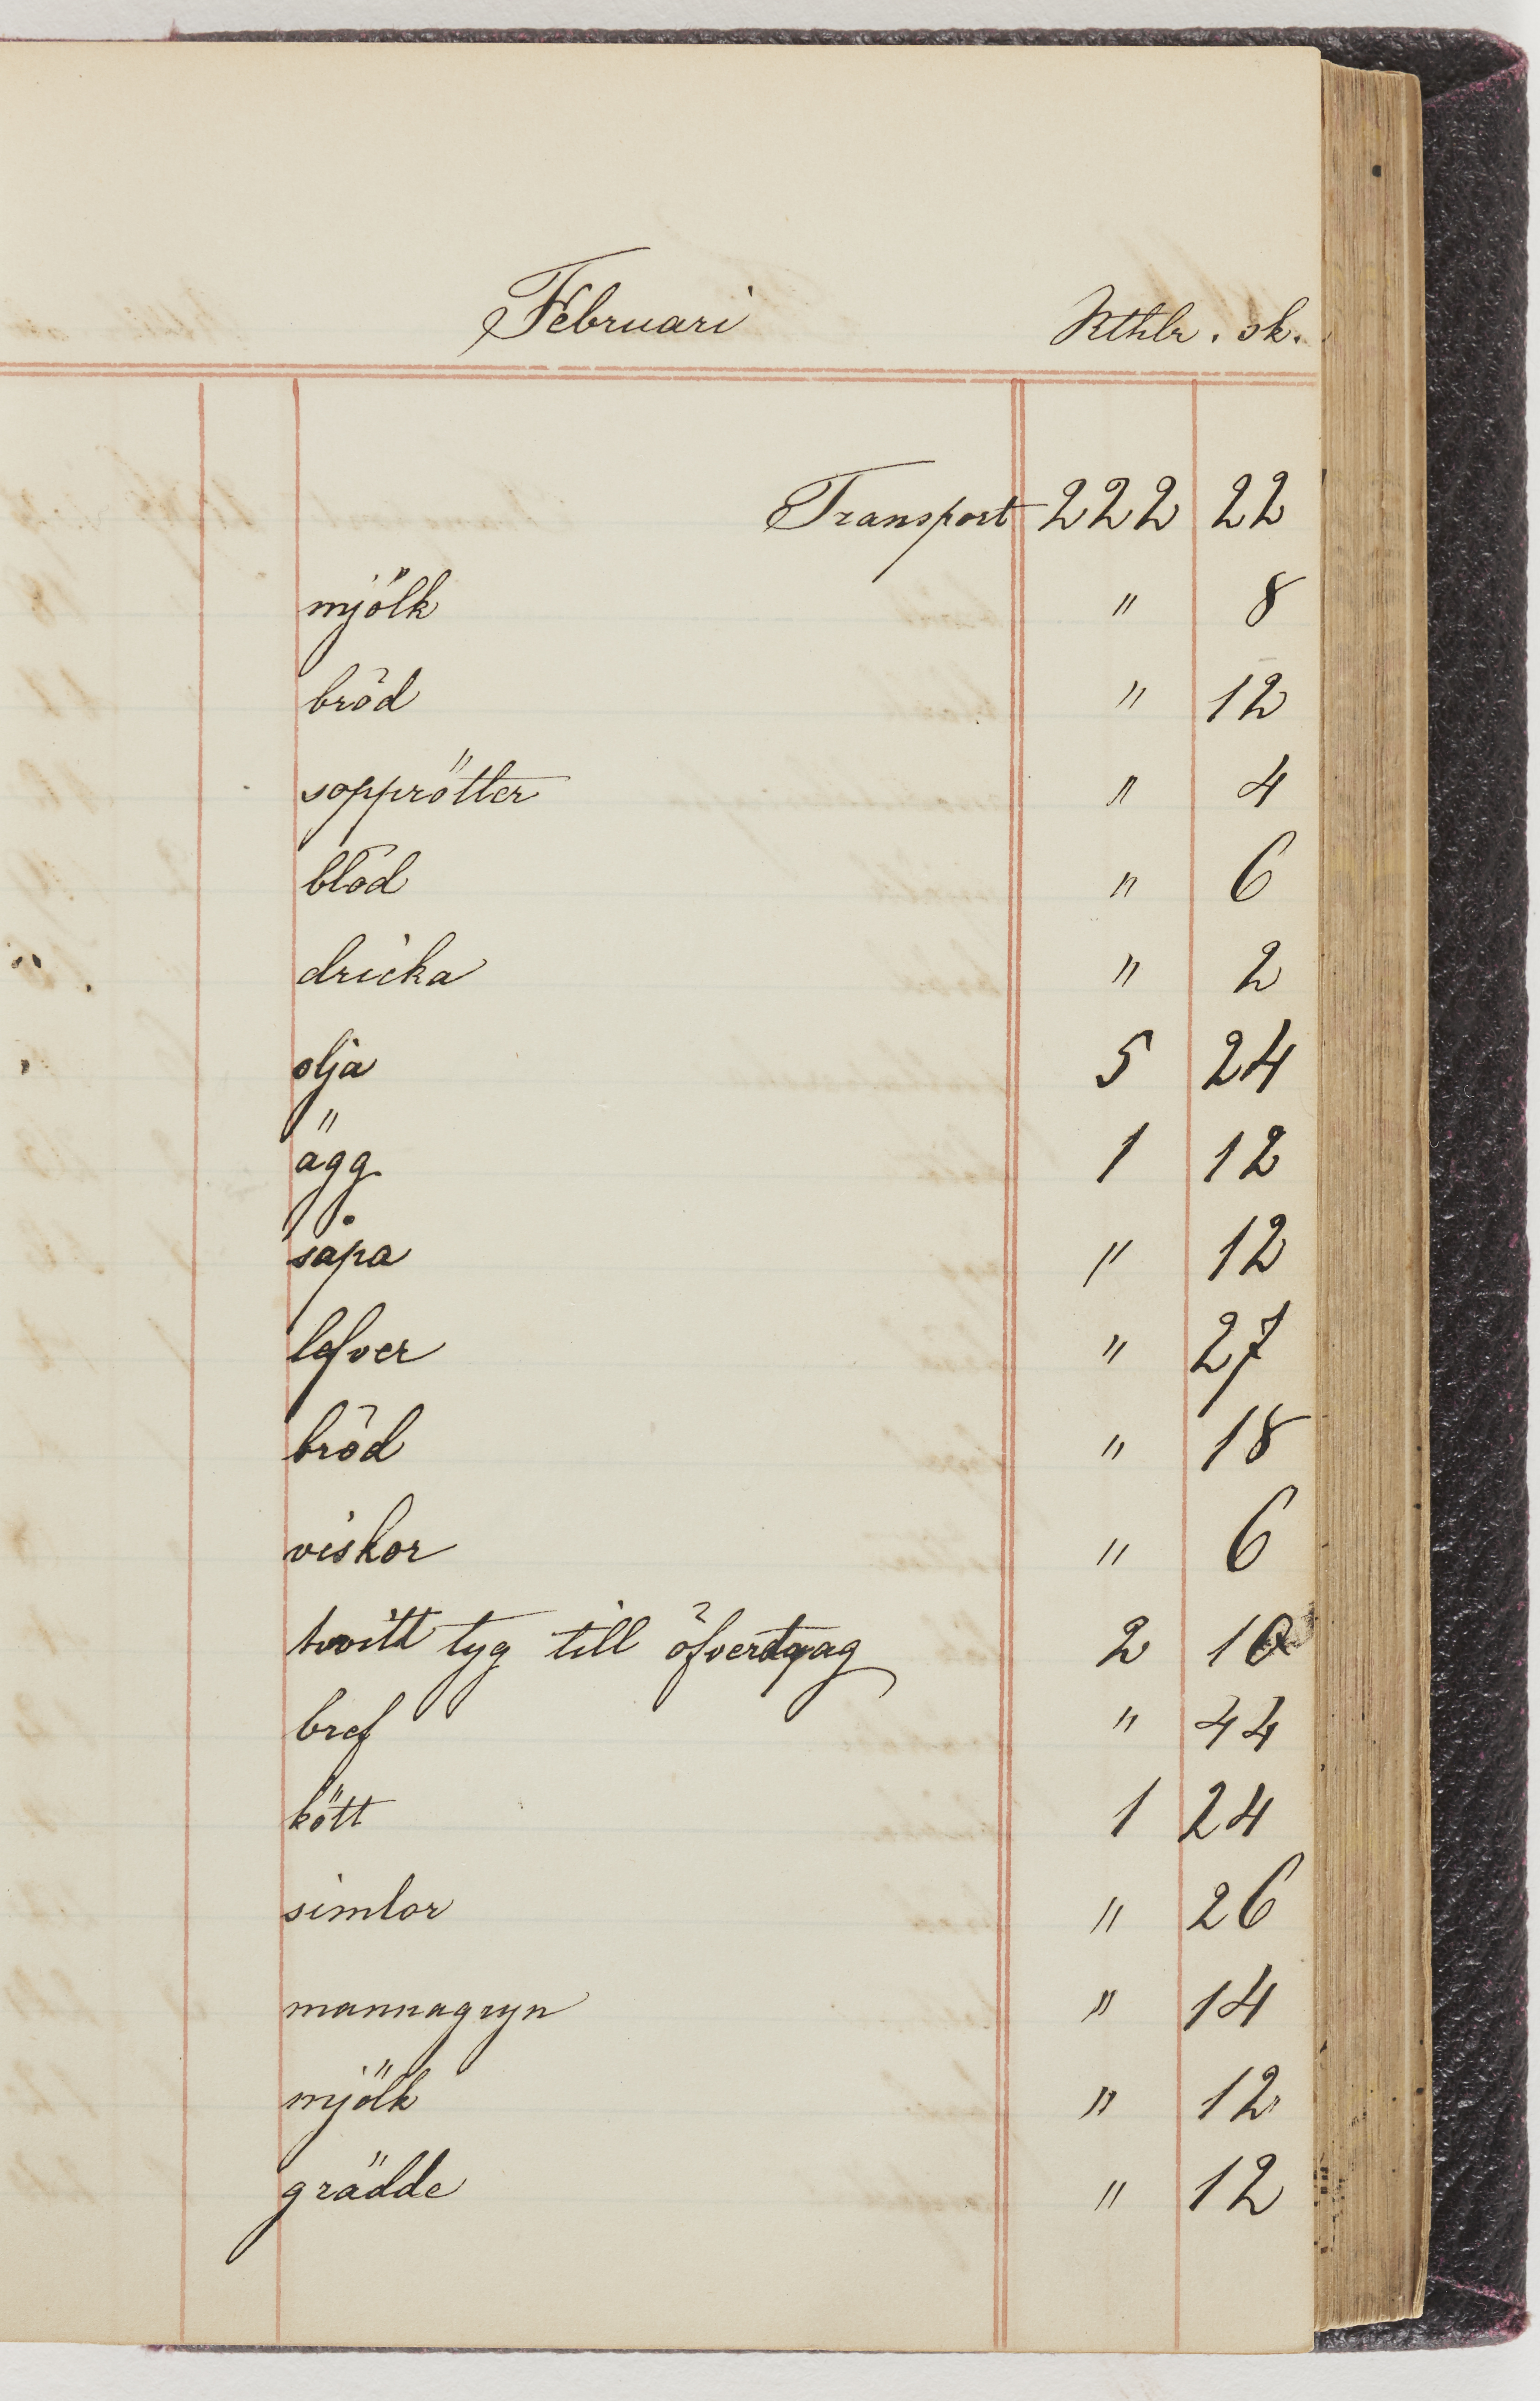 Februari Rthlr. sk.
Transport 222 22
mjölk " 8
bröd " 12
sopprötter " 4
blod " 6
dricka " 2
olja 5 24
ägg 1 12
såpa " 12
lefver " 27
bröd " 18
viskor " 6
hvitt tyg till öfverdrag 2 10
bref " 44
kött 1 24
simlor " 26
mannagryn " 14
mjölk " 12
grädde " 12